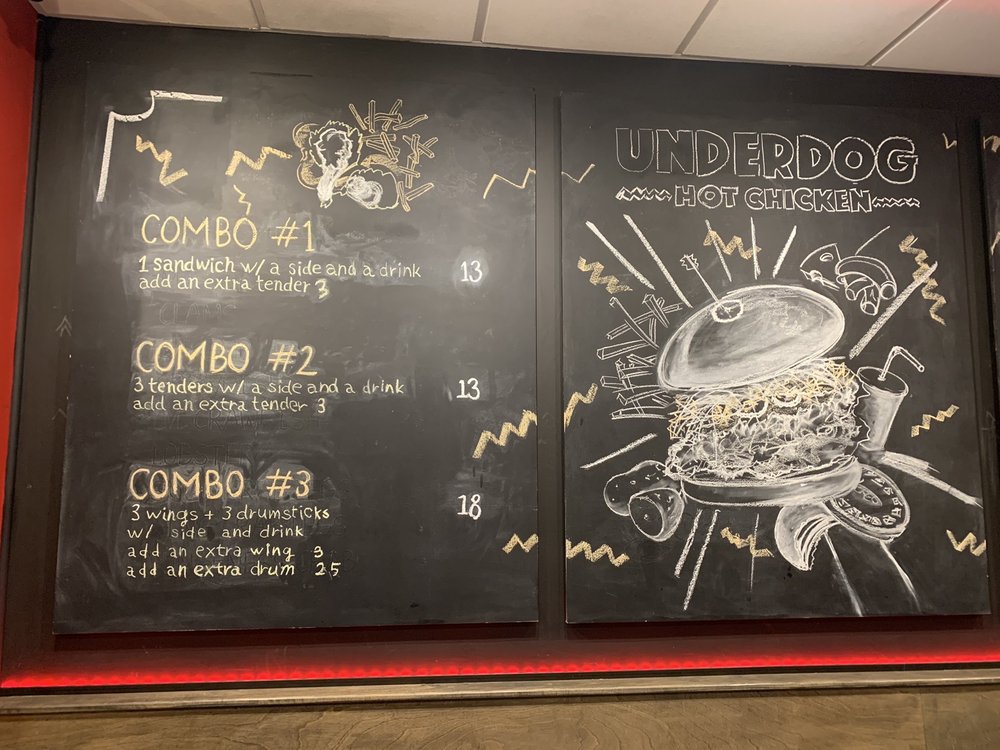 COMBO #1
1 sandwich w/ a side and a drink 13
add an extra tender 3
COMBO #2
3 tenders w/ a side and a drink 13
add an extra tender 3
COMBO #3
3 wings + 3 drumsticks 18
w/ side and drink
add an extra wing 3
add an extra drum 25
UNDERDOG
HOT CHICKEN